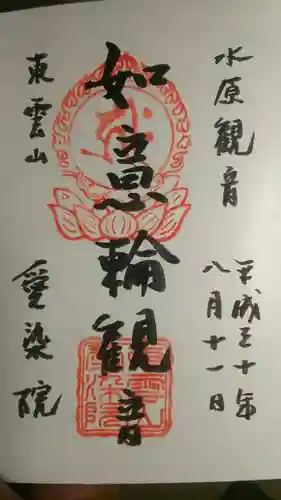 水原観音
平成三十年
八月十一日
如意輪観音
東雲山
愛染院